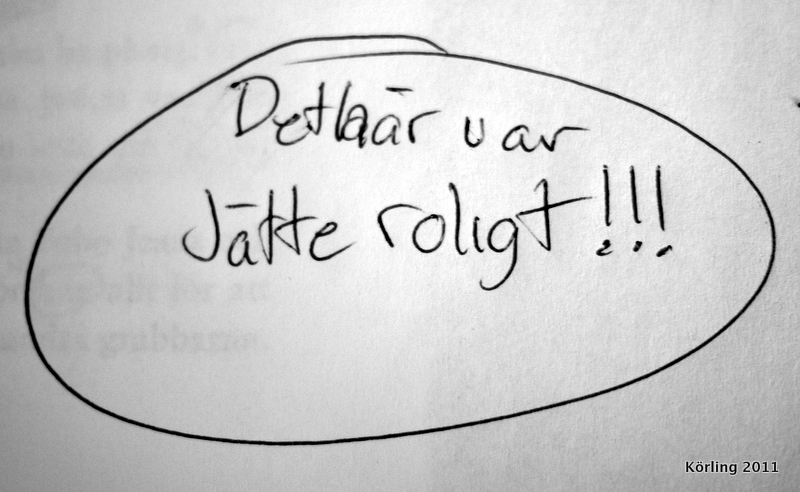 Dethäär var
Jätte roligt!!!
Körling 2011